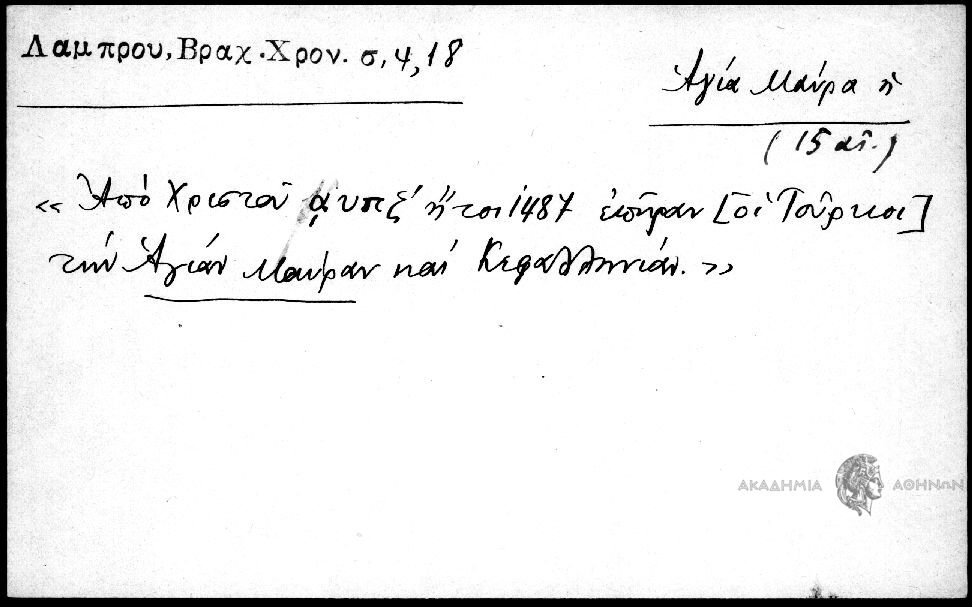 Λαμπρου, Βραχ. Χρον. σ, 4, 18
Ἁγία Μαύρα ἡ
(15 αἰ.)
« Ἀπὸ Χριστοῦ ͵αυπζ´ ἤτοι 1487 ἐπῆραν [οἱ Τοῦρκοι]
τὴν Ἁγίαν Μαύραν καὶ Κεφαλληνίαν. »
ΑΚΑΔΗΜΙΑ ΑΘΗΝΩΝ